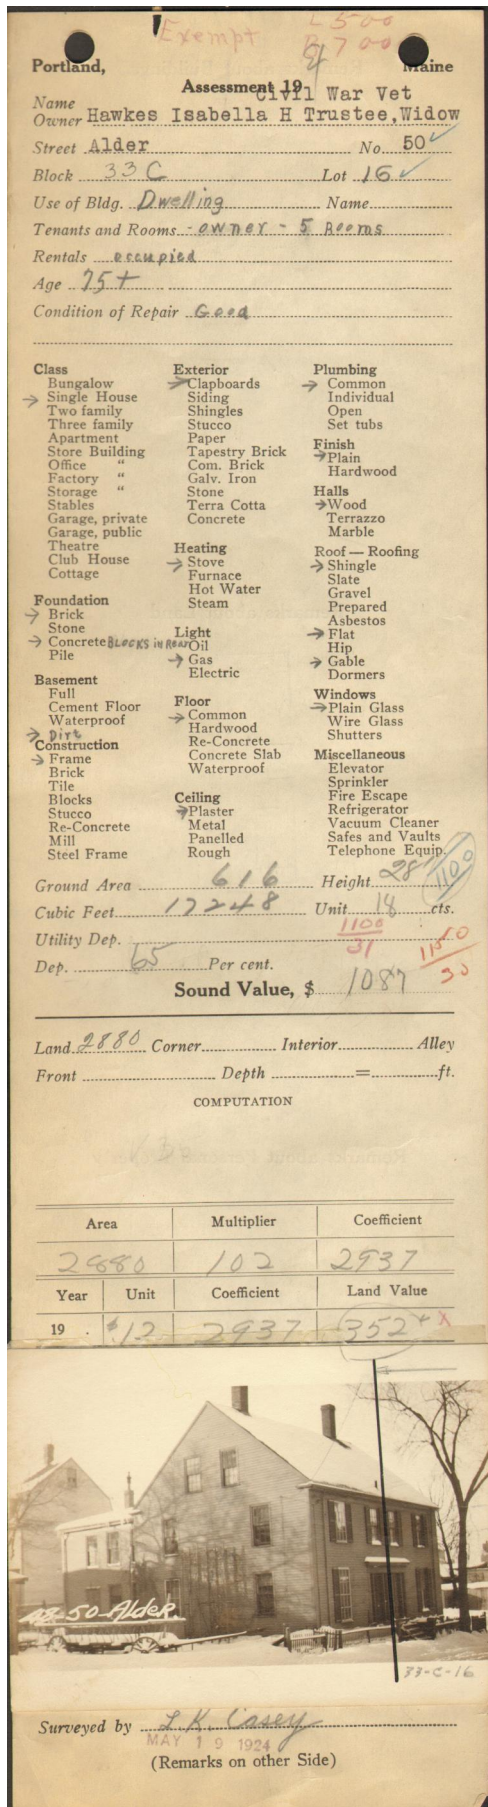 Exempt L 500
B 700
Portland, Maine
Assessment 19 24
Civil War Vet
Name
Owner Hawkes Isabella H Trustee, Widow
Street Alder No. 50 ✓
Block 33 C Lot 16 ✓
Use of Bldg. Dwelling Name
Tenants and Rooms - owner - 5 Rooms
Rentals occupied
Age 75+
Condition of Repair Good
Class
Bungalow
→ Single House
Two family
Three family
Apartment
Store Building
Office "
Factory "
Storage "
Stables
Garage, private
Garage, public
Theatre
Club House
Cottage
Foundation
→ Brick
Stone
→ Concrete BLOCKS in Rear
Pile
Basement
Full
Cement Floor
Waterproof
→ Dirt
Construction
→ Frame
Brick
Tile
Blocks
Stucco
Re-Concrete
Mill
Steel Frame
Exterior
→ Clapboards
Siding
Shingles
Stucco
Paper
Tapestry Brick
Com. Brick
Galv. Iron
Stone
Terra Cotta
Concrete
Heating
→ Stove
Furnace
Hot Water
Steam
Light
Oil
→ Gas
Electric
Floor
→ Common
Hardwood
Re-Concrete
Concrete Slab
Waterproof
Ceiling
→ Plaster
Metal
Panelled
Rough
Plumbing
→ Common
Individual
Open
Set tubs
Finish
→ Plain
Hardwood
Halls
→ Wood
Terrazzo
Marble
Roof — Roofing
→ Shingle
Slate
Gravel
Prepared
Asbestos
→ Flat
Hip
→ Gable
Dormers
Windows
→ Plain Glass
Wire Glass
Shutters
Miscellaneous
Elevator
Sprinkler
Fire Escape
Refrigerator
Vacuum Cleaner
Safes and Vaults
Telephone Equip.
Ground Area 616 Height 28' 1100
Cubic Feet 17248 Unit 18 cts.
Utility Dep. 1100
31
Dep. 65 Per cent.
30
Sound Value, $ 1087
Land 2880 Corner Interior Alley
Front Depth = ft.
COMPUTATION
Area Multiplier Coefficient
2880 102 2937
Year Unit Coefficient Land Value
19 . $12 2937 352 + X
48-50-Alder.
33-C-16
Surveyed by L. K. Casey
MAY 19 1924
(Remarks on other Side)